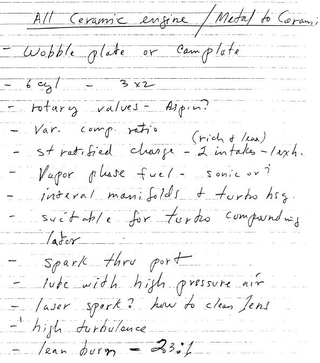 All Ceramic engine / Metal to Cerami
- Wobble plate or Camplate
- 6 cyl - 3 x 2
- rotary valves - Aspin?
- Var. comp ratio
(rich & lean)
- stratified charge - 2 intakes - 1 exh.
- Vapor phase fuel - sonic or?
- interal manifolds & turbo hsg.
- suitable for turbo compounding
later
- spark thru port
- lube with high pressure air
- laser spark? how to clean lens
- high turbulence
- lean burn - 23:1